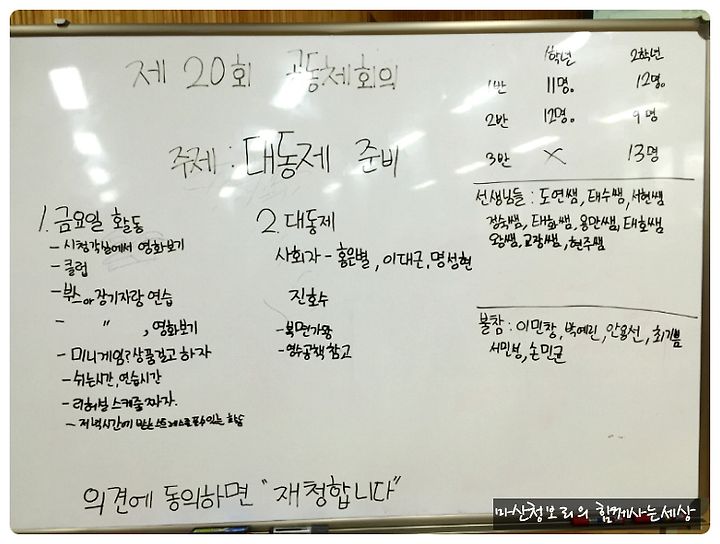 제 20회 공동체회의
주제 : 대동제 준비
1학년 2학년
1반 11명. 12명.
2반 12명. 9명
3반 X 13명
선생님들 : 도연쌤, 태수쌤, 서현쌤
정숙쌤, 태화쌤, 용만쌤, 태호쌤
왕쌤, 교장쌤, 현주쌤
불참 : 이민창, 박예린, 안용선, 최기쁨
서민성, 손민균
1. 금요일 활동
- 시청각실에서 영화보기
- 클럽
- 부스 or 장기자랑 연습
- " , 영화보기
- 미니게임? 상품걸고 하자
- 쉬는시간, 연습시간
- 리허설 스케줄 짜자.
- 저녁시간에 스트레스 풀수있는 활동
2. 대동제
사회자 - 홍은별, 이대근, 명성현
진호수
- 복면가왕
- 영수공책 참고
의견에 동의하면 "재청합니다"
마산청보리의 함께사는세상